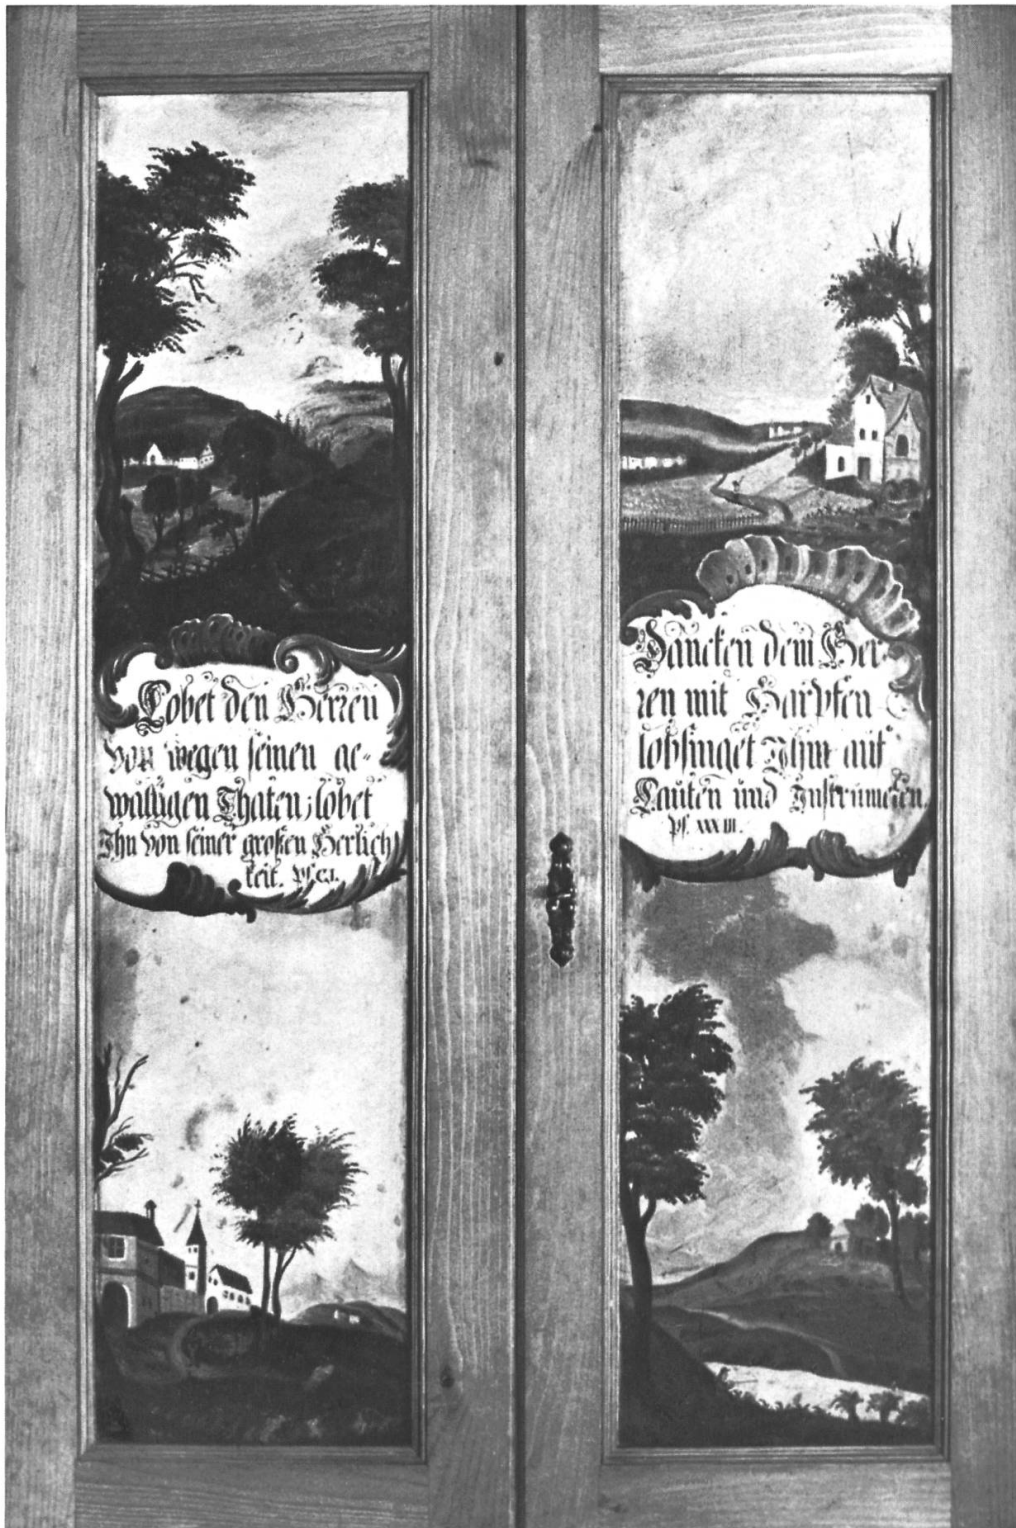 Lobet den Herren
von wegen seinen ge-
waltigen Thaten; lobet
Ihn von seiner großen Herlich
keit. Ps. CL.
Dancken dem Her-
ren mit Harpfen
lobsinget Ihm auf
Lauten und Instrumeten.
Ps. XXXIII.